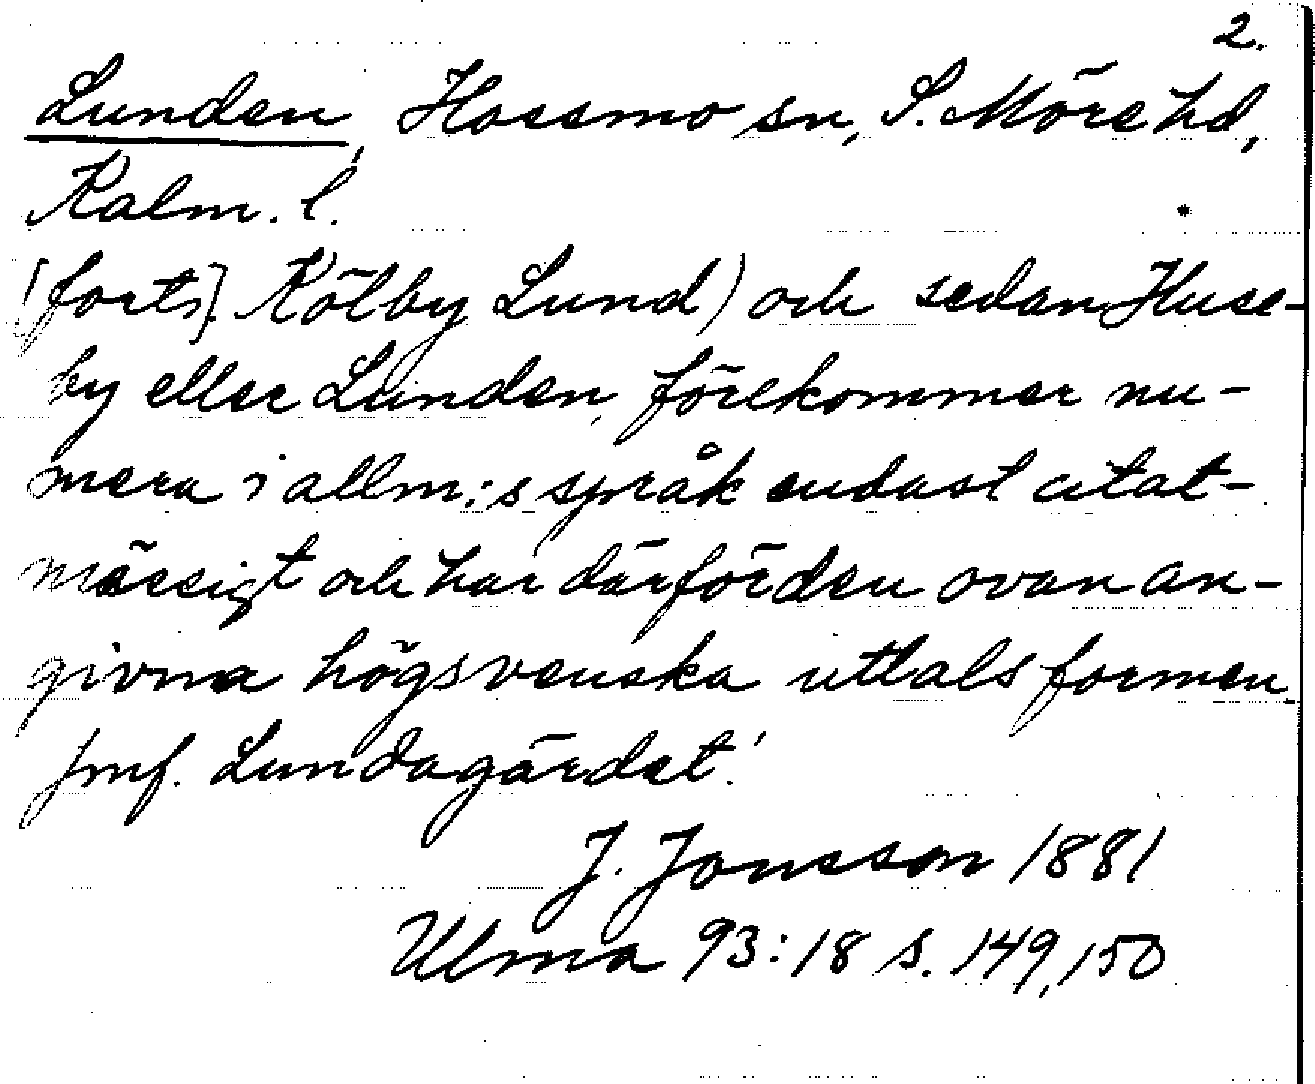 2.
Lunden, Hossmo sn, S. Möre hd,
Kalm. l.
[forts]. Kölby Lund) och sedan Huse-
by eller Lunden, förekommer nu-
mera i allm:s språk endast citat-
mässigt och har därför den ovan an-
givna högsvenska uttalsformen.
Jmf. Lundagärdet!
J. Jonsson 1881
Ulma 93:18 s. 149,150